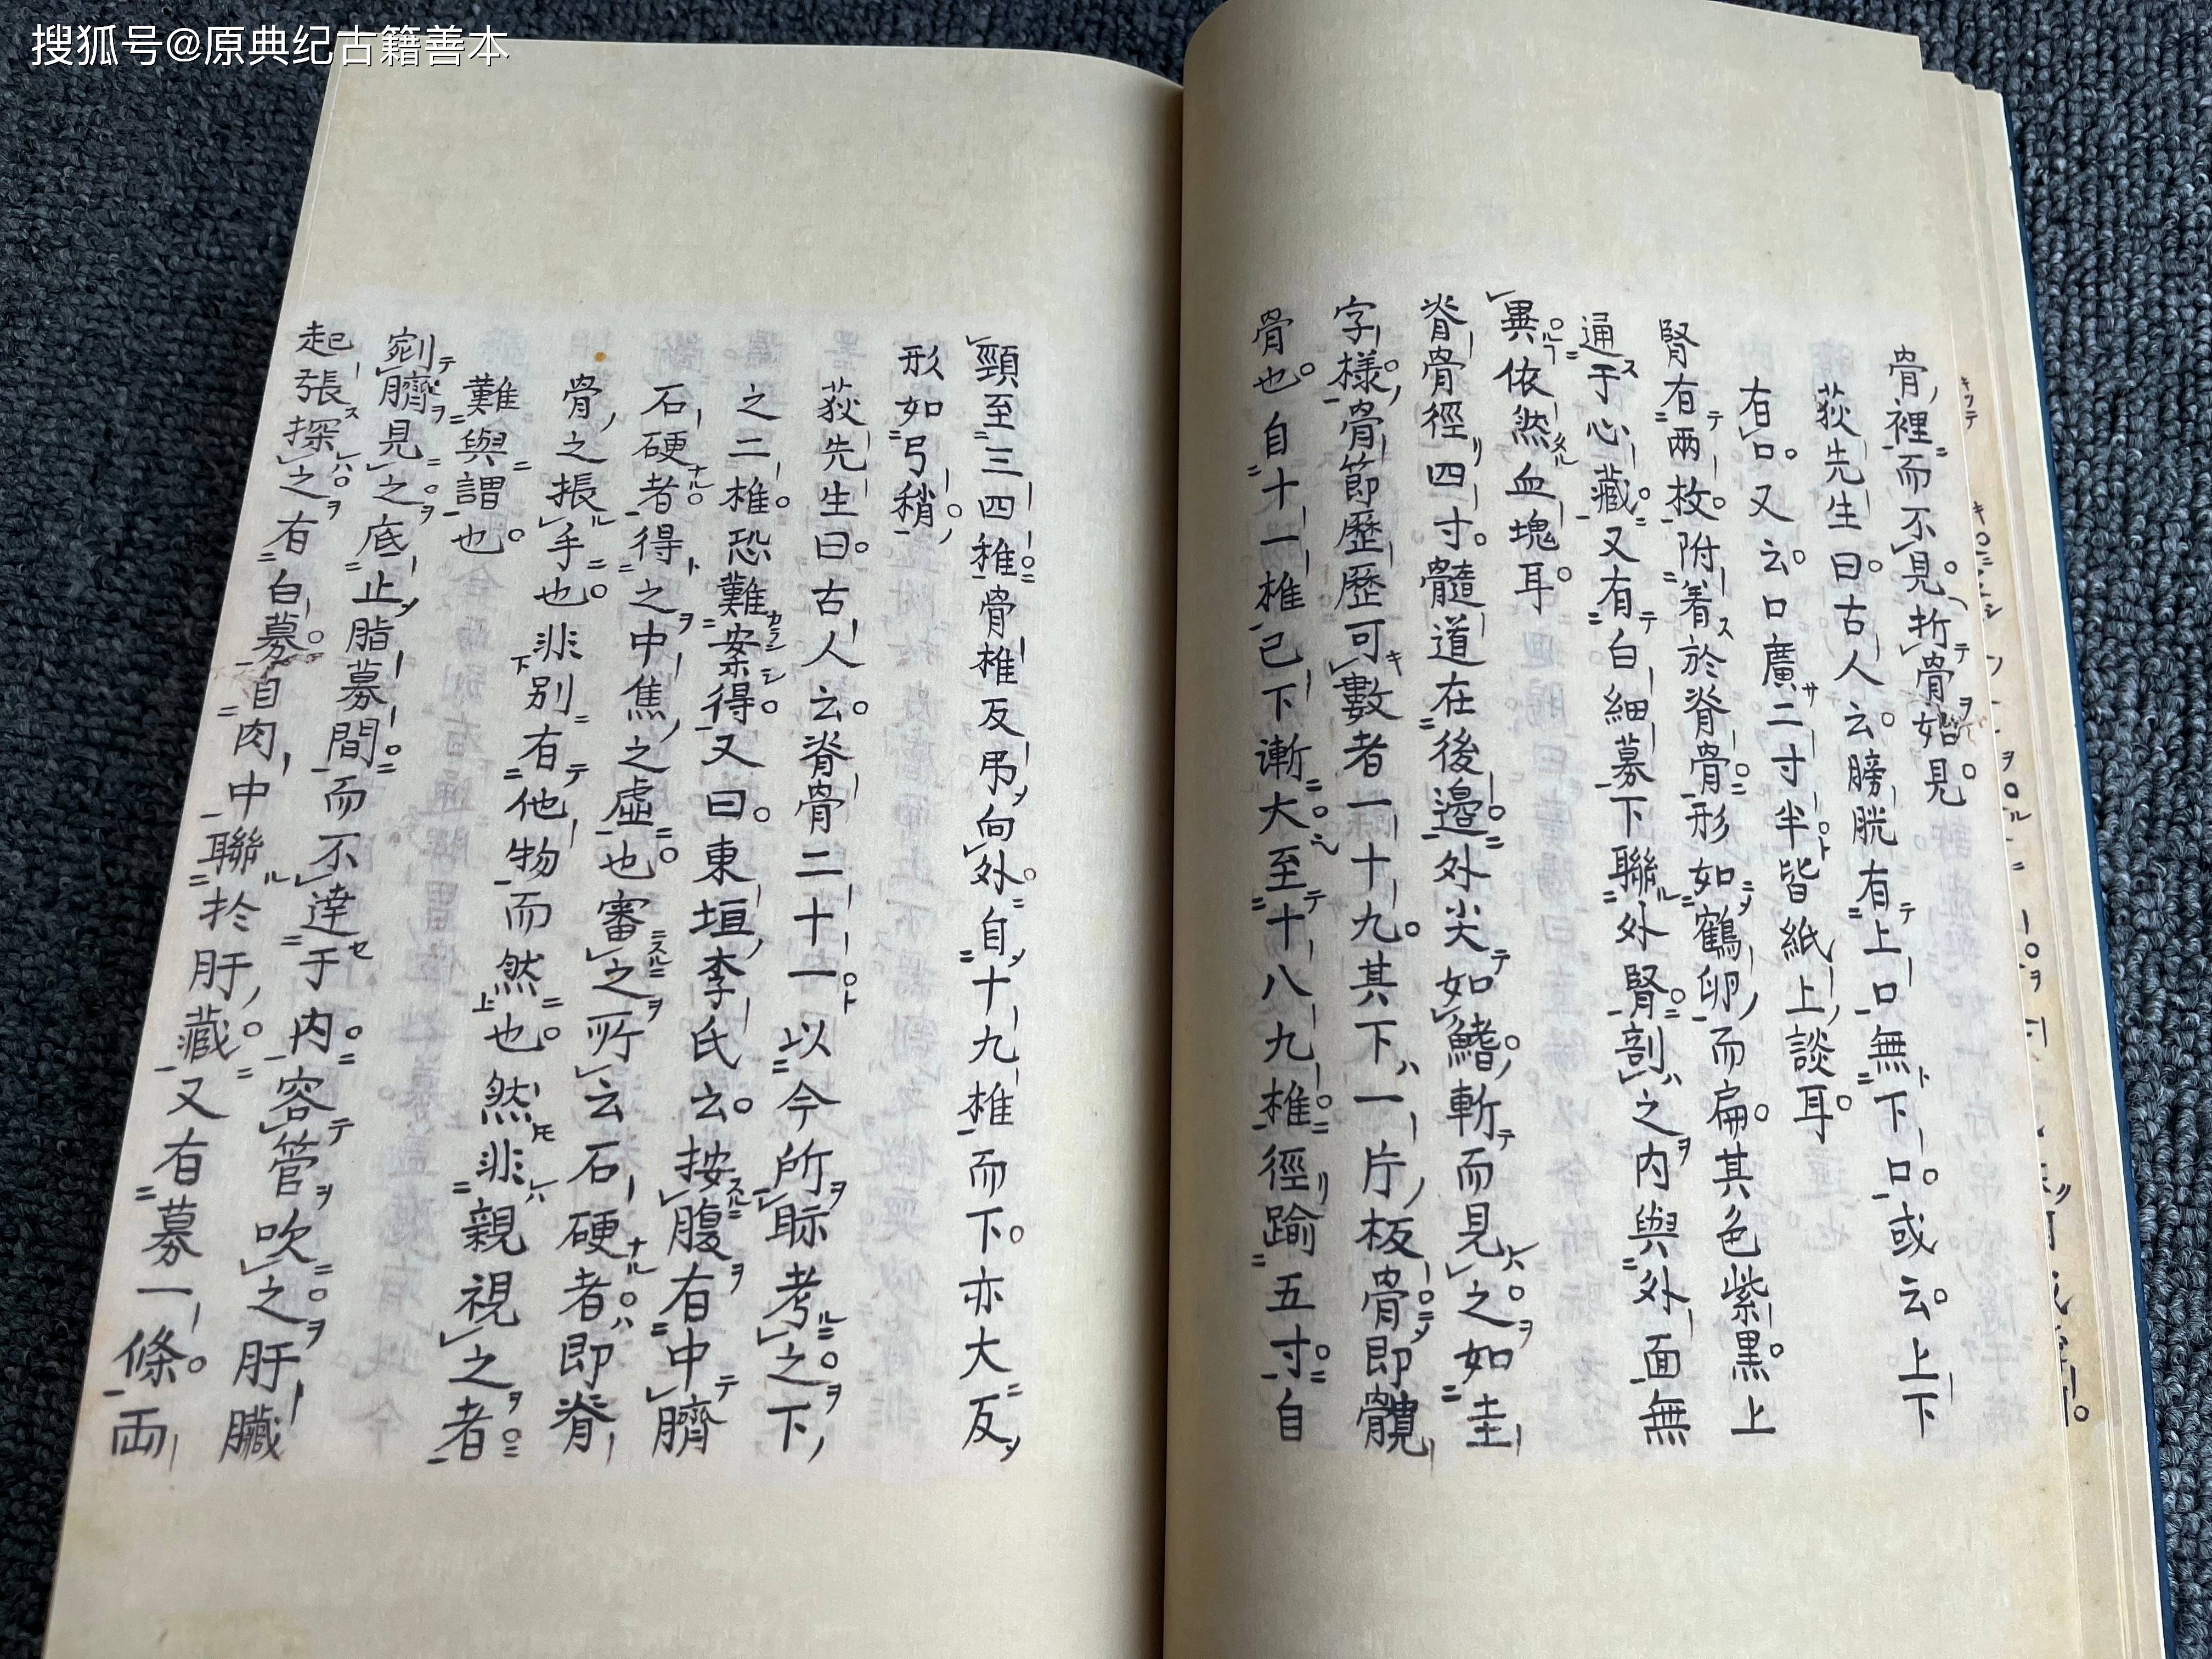 搜狐号@原典纪古籍善本
骨裡而不見折骨始見
荻先生曰古人云膀胱有上口無下口或云上下
有口又云口廣二寸半皆紙上談耳
腎有兩枚附着於脊骨形如鶴卵而扁其色紫黑上
通于心藏又有白細募下聯外腎剖之内與外面無
異依然血塊耳
脊骨徑四寸髓道在後邊外尖如鰭斬而見之如圭
字樣骨節歷歷可數者一十九其下一片板骨即髖
骨也自十一椎已下漸大至十八九椎徑踰五寸自
頸至三四椎骨椎反弔向外自十九椎而下亦大反
形如弓稍
荻先生曰古人云脊骨二十一以今所眎考之下
之二椎恐難案得又曰東垣李氏云按腹有中臍
石硬者得之中焦之虛也審之所云石硬者即脊
骨之振手也非别有他物而然也然非親視之者
難與謂也
剜臍見之底止脂募間而不達于内容管吹之肝臟
起張探之有白募自肉中聯於肝藏又有募一條両